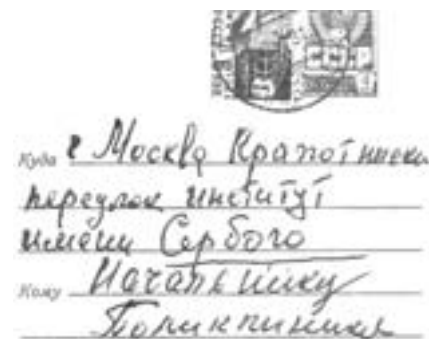 Куда г Москва Крапотински
переулок институт
имени Сербого
Кому Начальнику
Поликлиники